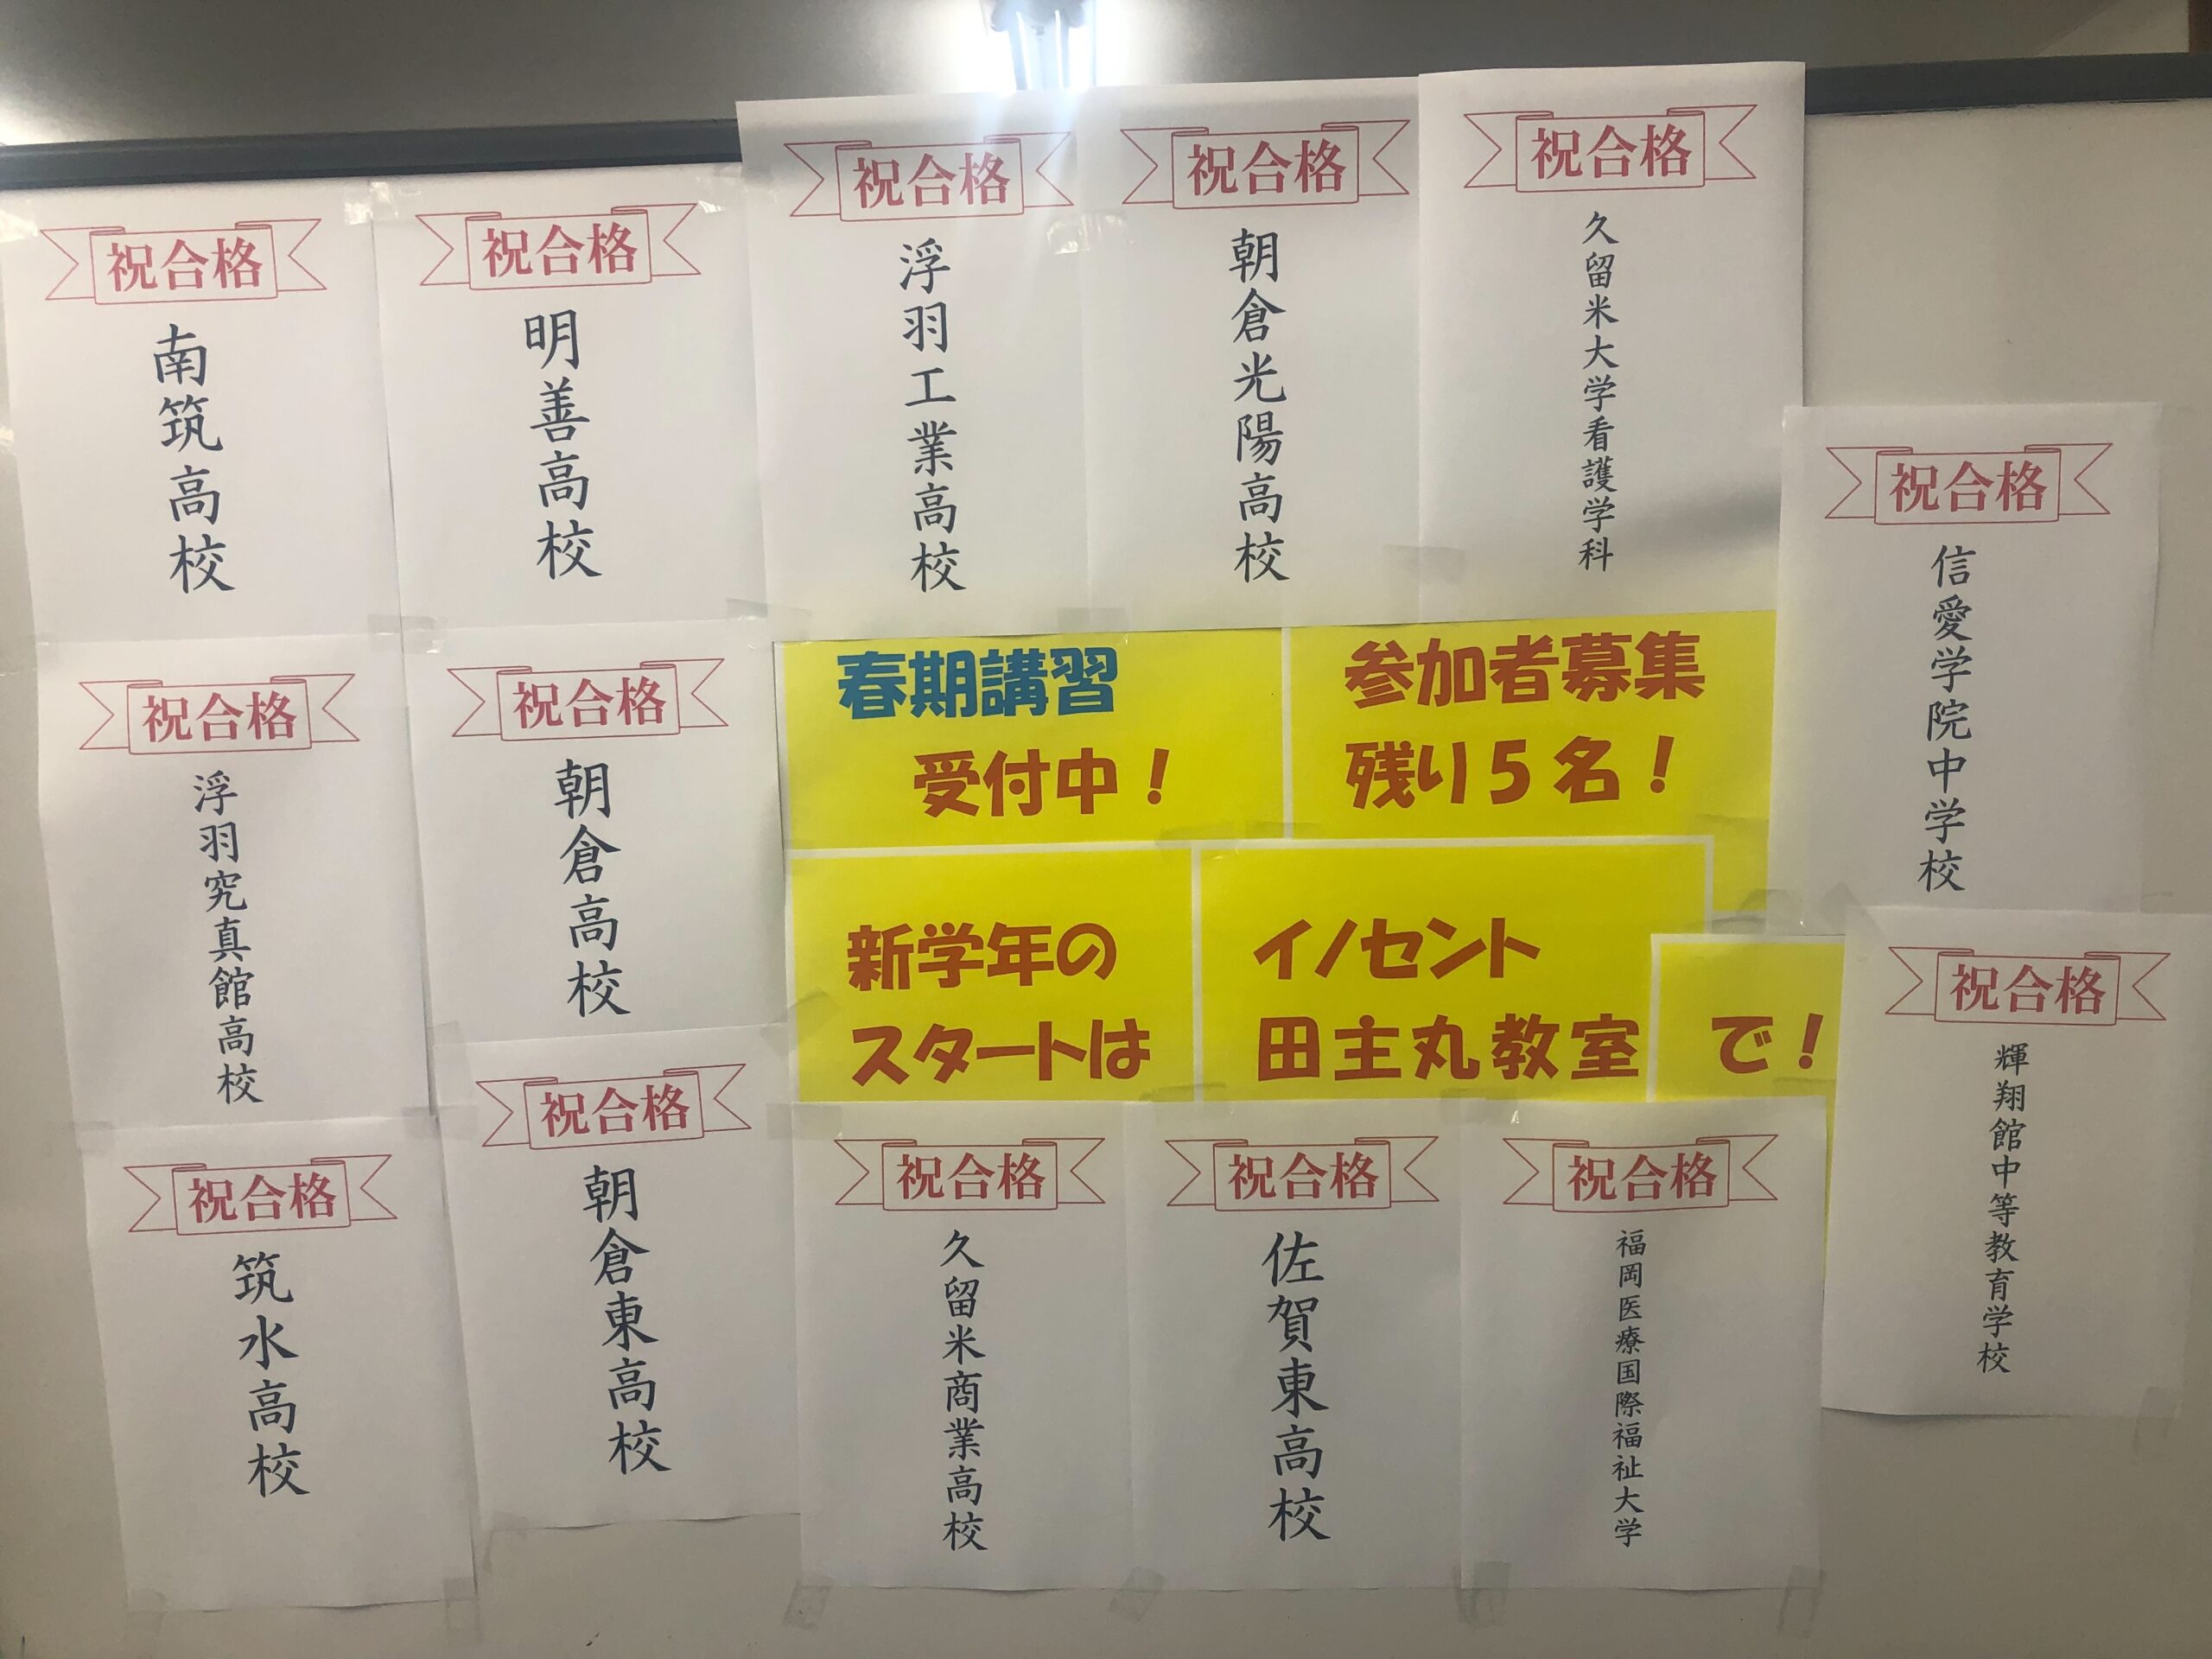 祝合格
南筑高校
祝合格
明善高校
祝合格
浮羽工業高校
祝合格
朝倉光陽高校
祝合格
久留米大学看護学科
祝合格
信愛学院中学校
祝合格
浮羽究真館高校
祝合格
朝倉高校
春期講習
受付中！
参加者募集
残り５名！
新学年の
スタートは
イノセント
田主丸教室
で！
祝合格
輝翔館中等教育学校
祝合格
筑水高校
祝合格
朝倉東高校
祝合格
久留米商業高校
祝合格
佐賀東高校
祝合格
福岡医療国際福祉大学